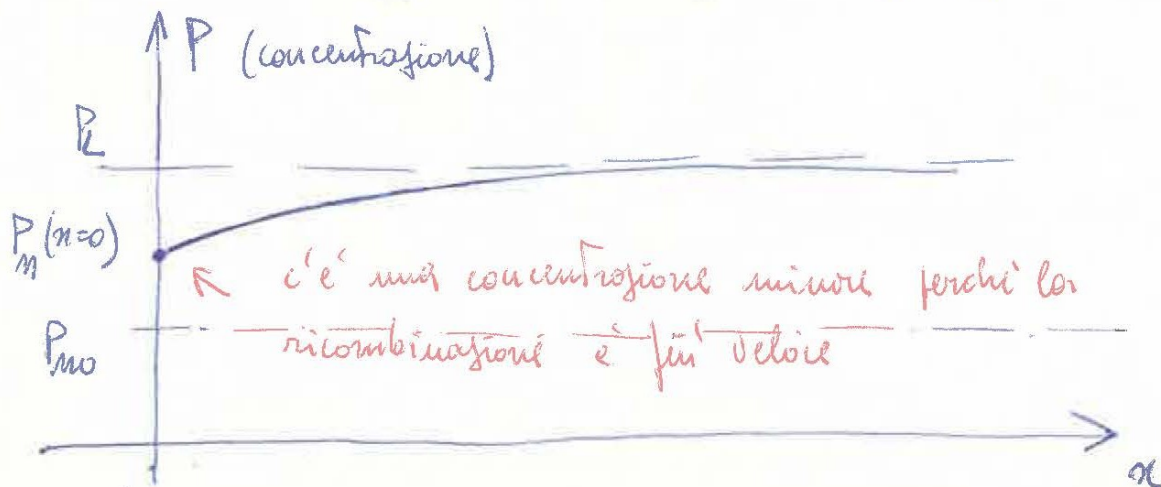 P (concentrazione)
P_L
P_n(x=0)
c'è una concentrazione minore perché la
ricombinazione è più veloce
P_no
x